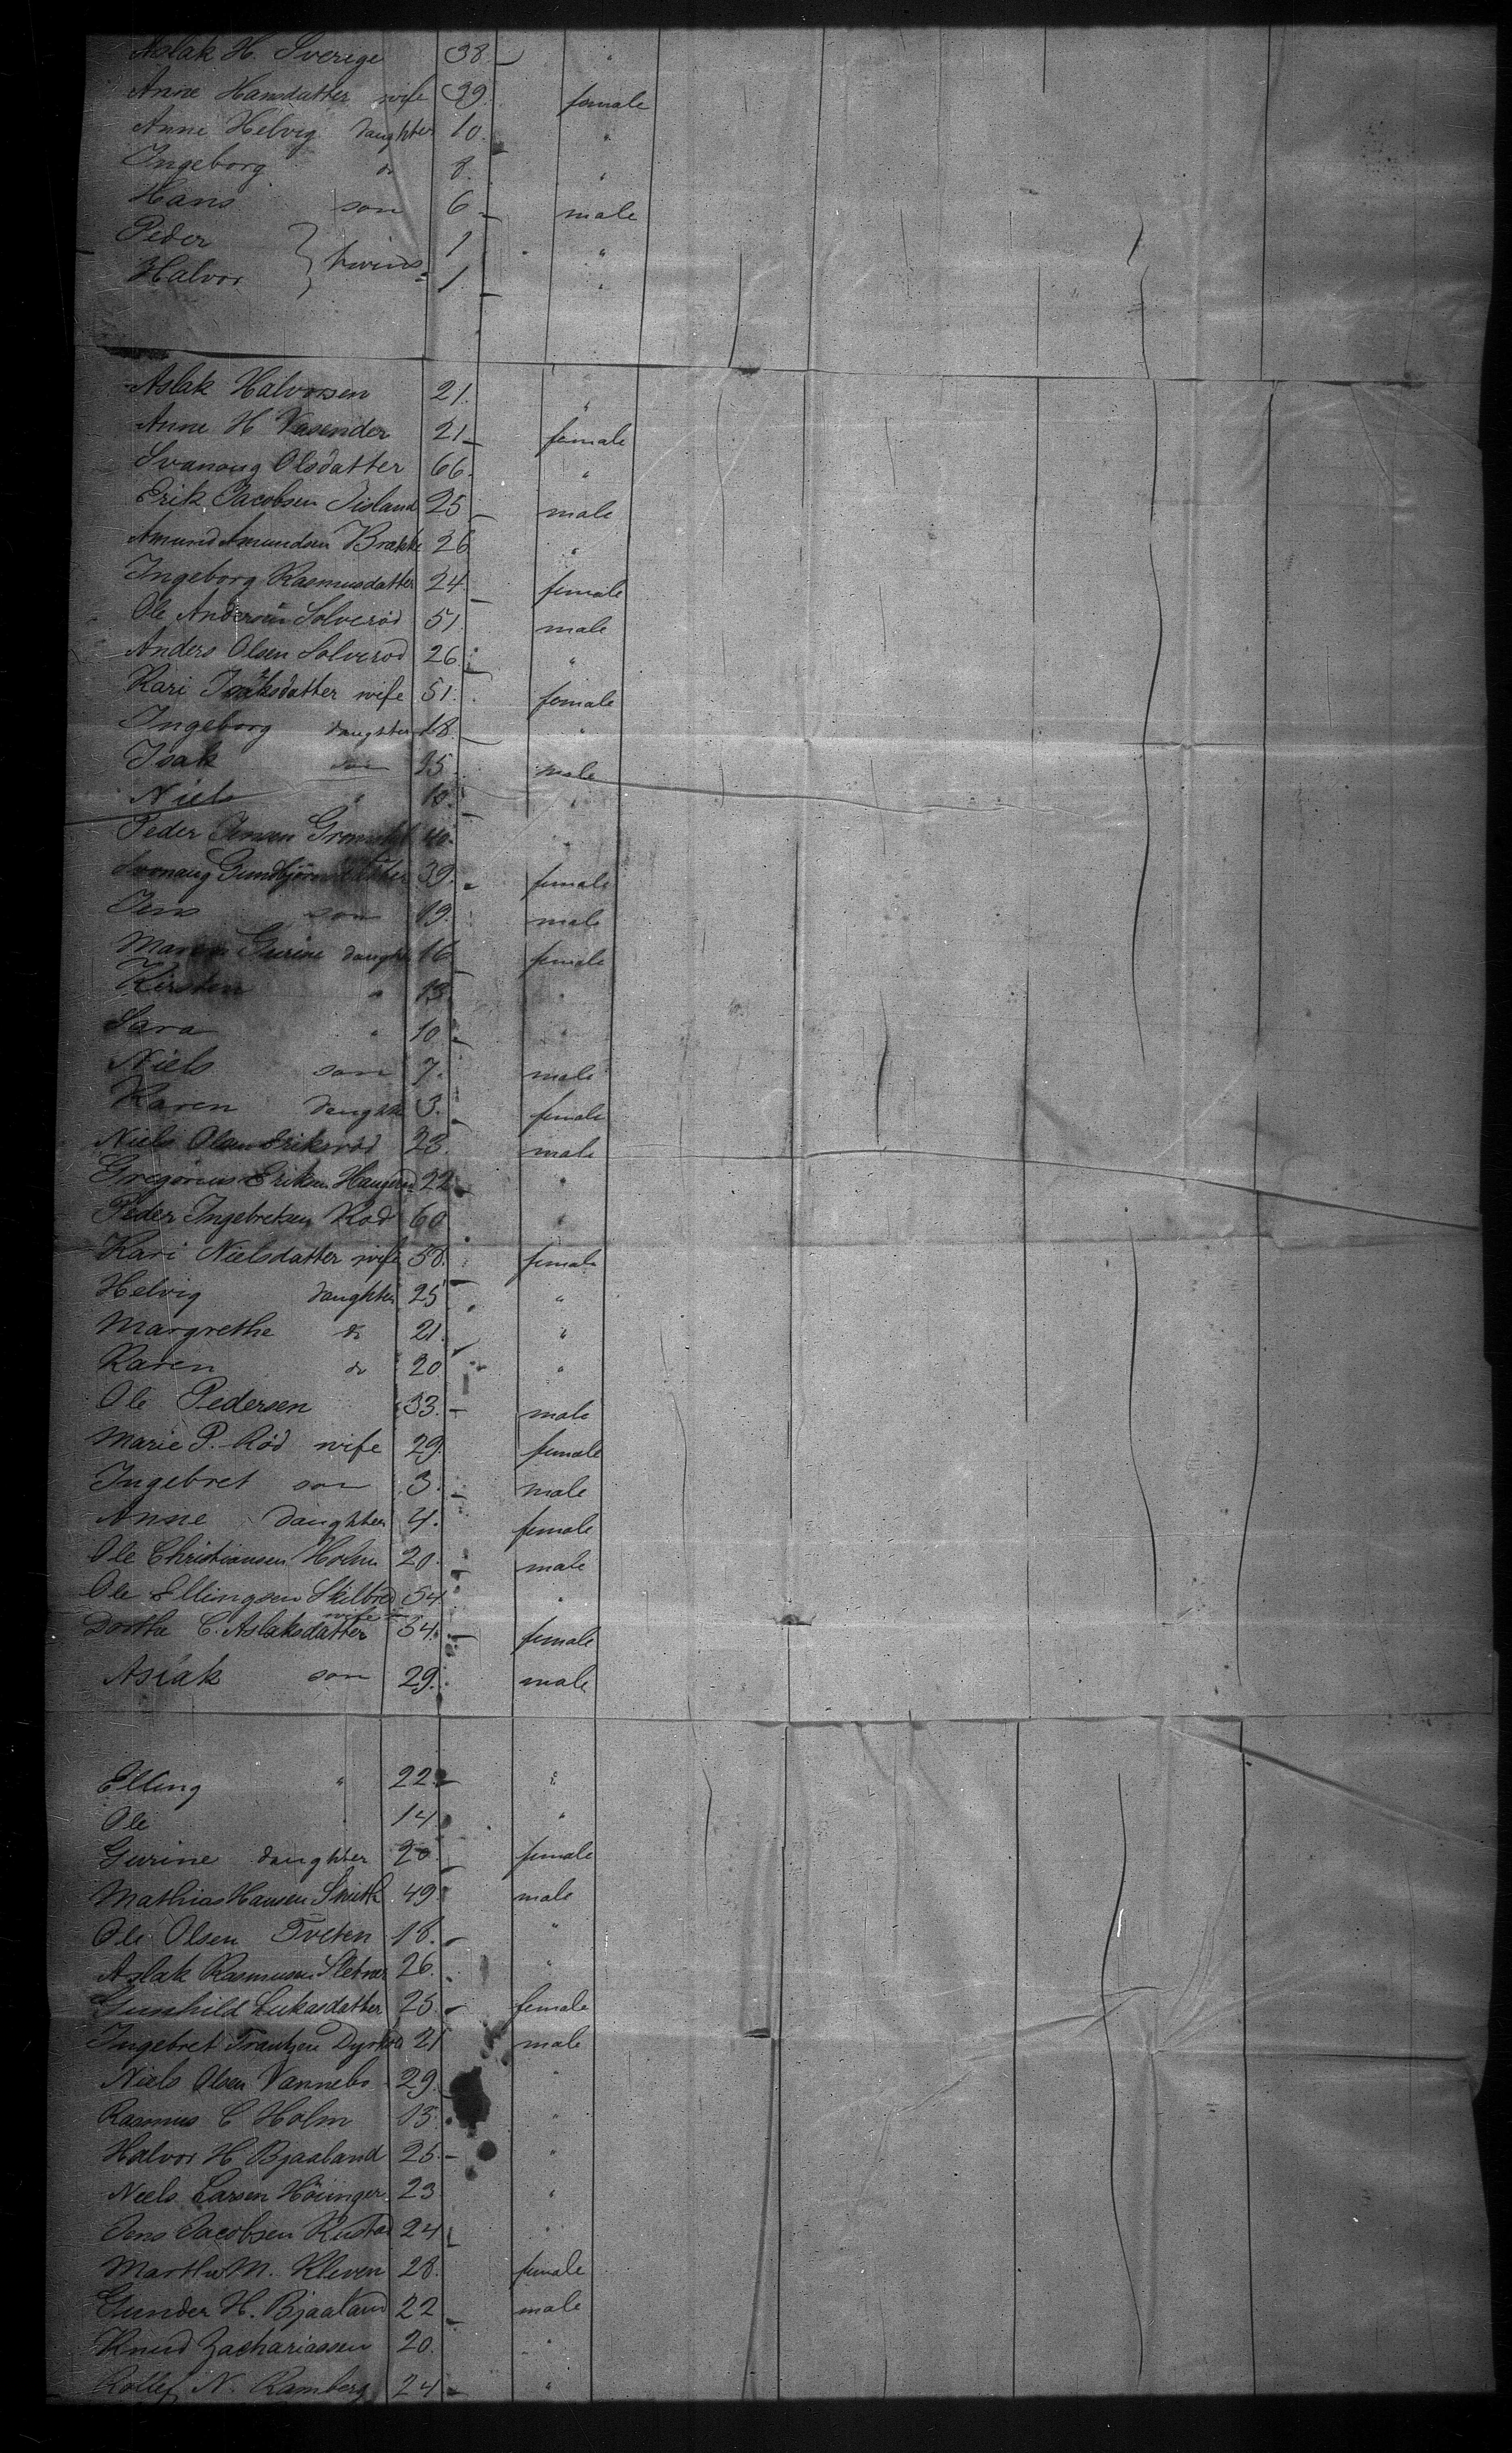 Aslak H. Sverige 38 "
Anne Hansdatter wife 39. female
Anne Helvig daughter 10. "
Ingeborg do 8. "
Hans son 6 male
Peder } twins 1 "
Halvor 1. "
Aslak Halvorsen 21. "
Anne H Vasender 21 female
Svanaug Olsdatter 66. "
Erik Jacobsen 25 male
Amund Amundsen Brække 26 "
Ingeborg Rasmusdatter 24. female
Ole Andersen Solverød 51 male
Anders Olsen Solverod 26 "
Kari Isaksdatter wife 51. female
Ingeborg daughter 18. "
Isak son 15 male
Niels " "
Peder Jensen 40. "
Svanaug 39. female
Jens son 19. male
Maren Gurine daughter 16 female
Kirsten " 13. "
Sara " 10 "
Niels son 7. male
Karen daughter 3. female
Niels Olsen Eriksrød 23. male
Gregorius Eriksen 22 "
Peder Ingebretsen Rød 60 "
Kari Nielsdatter wife 58. female
Helvig daughter 25 "
Margrethe do 21. "
Karen do 20 "
Ole Pedersen 33. male
Marie P. Rød wife 29. female
Ingebret son 3. male
Anne daughter 4. female
Ole Christiansen Holm 20. male
Ole Ellingsen Skilbred 54 "
wife
Dorthe C. Aslaksdatter 54. female
Aslak son 29. male
Elling " 22. "
Ole 14 "
Gurine daughter 20. female
Mathias Hansen Smith 49. male
Ole Olsen Tveten 18. "
Aslak Rasmusen 26. "
Gunhild Lukasdatter 25. female
Ingebret Frantzen 21 male
Niels Olsen Vannebo 29. "
Rasmus C Holm 15. "
Halvor H Bjaaland 25. "
Niels Larsen 23 "
Jens Jacobsen Rustad 24 "
Marthe M. Kleven 28. female
Gunder H. Bjaaland 22 male
Knud Zachariassen 20. "
Rollef N. Ramberg 24 "